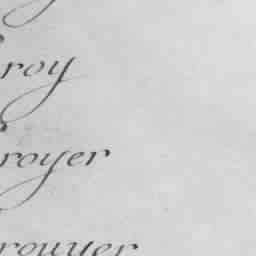 roy
royer
rouyer